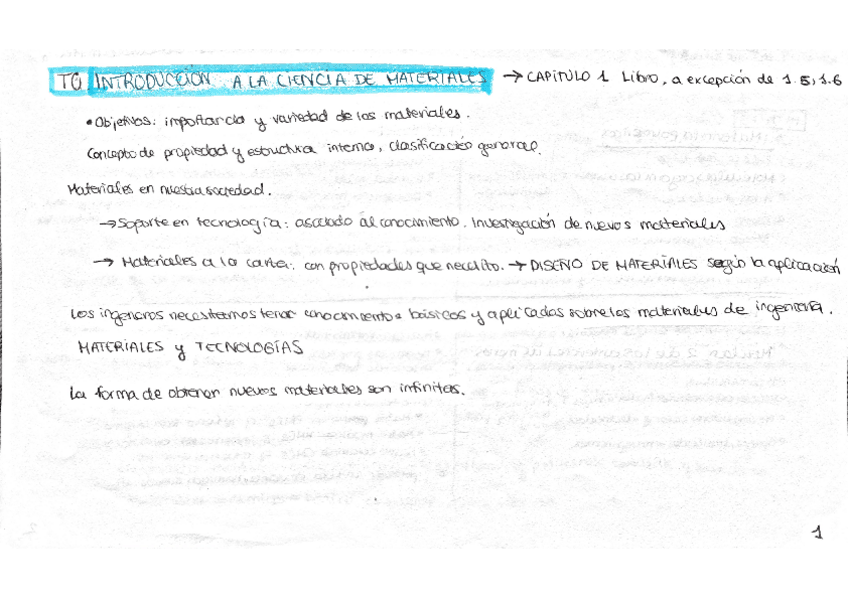 T0 INTRODUCCIÓN A LA CIENCIA DE MATERIALES → CAPÍTULO 1 Libro, a excepción de 1.5, 1.6
• Objetivos: importancia y variedad de los materiales.
Concepto de propiedad y estructura interna, clasificación general.
Materiales en nuestra sociedad.
→ Soporte en tecnología: asociado al conocimiento. Investigación de nuevos materiales
→ Materiales a la carta: con propiedades que necesito. → DISEÑO DE MATERIALES según la aplicación
Los ingenieros necesitamos tener conocimientos básicos y aplicados sobre los materiales de ingeniería.
MATERIALES y TECNOLOGÍAS
La forma de obtener nuevos materiales son infinitas.
1